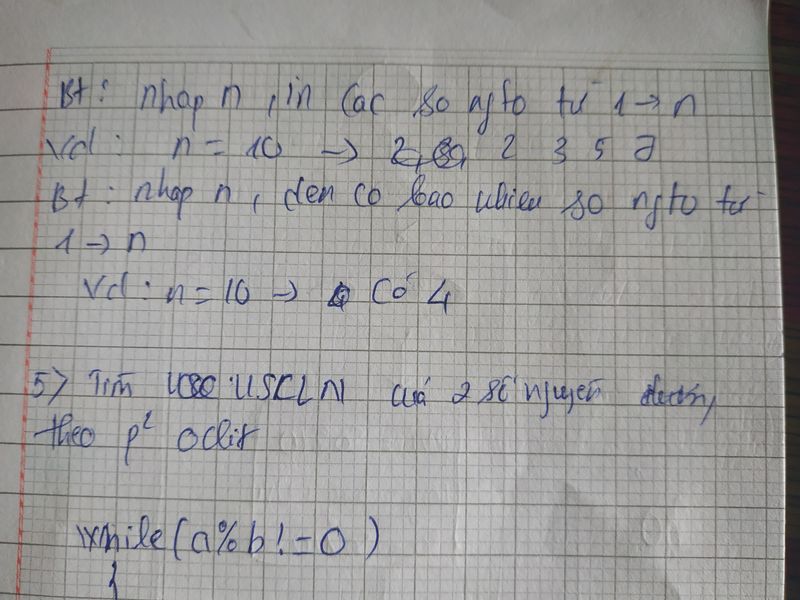 Bt: nhap n, in cac so ngto từ 1 → n
Vd: n = 10 → 2 3 5 7
Bt: nhap n, dem co bao nhieu so ngto từ
1 → n
Vd: n = 10 → Có 4
5) Tìm USCLN của 2 số nguyên dương
theo p² Oclit
while(a%b!=0)
{